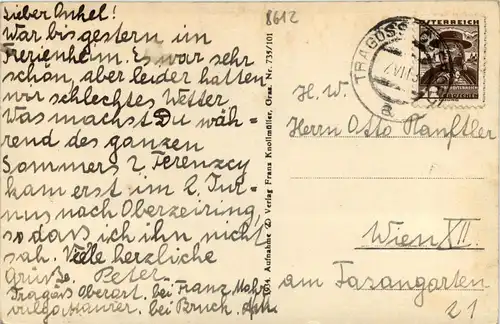 Lieber Onkel!
War bis gestern im
Ferienheim. Es war sehr
schön, aber leider hatten
wir schlechtes Wetter.
Was machst Du wäh=
rend des ganzen
Sommers? Ferenzcy
kam erst im 2. Tur=
nus nach Oberzeiring,
so dass ich ihn nicht
sah. Viele herzliche
Grüße. Peter.
Tragöss Oberort. bei Franz
vulgo Maurer. bei Bruck.
8612
1934. Aufnahme u. Verlag Franz Knollmüller, Graz. Nr. 735/101
TRAGÖSS
ÖSTERREICH
H. W.
Herrn Otto Ranftler
Wien XII
am Fasangarten
21